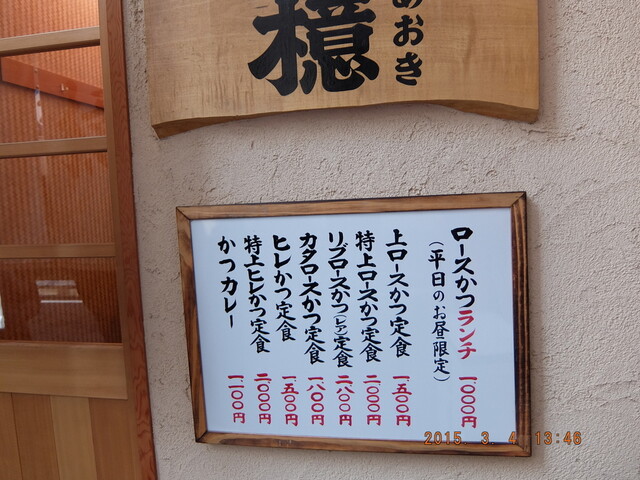 檍
あおき
ロースかつランチ
(平日のお昼限定)
一、〇〇〇円
上ロースかつ定食
一、五〇〇円
特上ロースかつ定食
二、〇〇〇円
リブロースかつ(レア)定食
二、八〇〇円
カタロースかつ定食
一、八〇〇円
ヒレかつ定食
一、五〇〇円
特上ヒレかつ定食
二、〇〇〇円
かつカレー
一、一〇〇円
2015. 3. 4 13:46